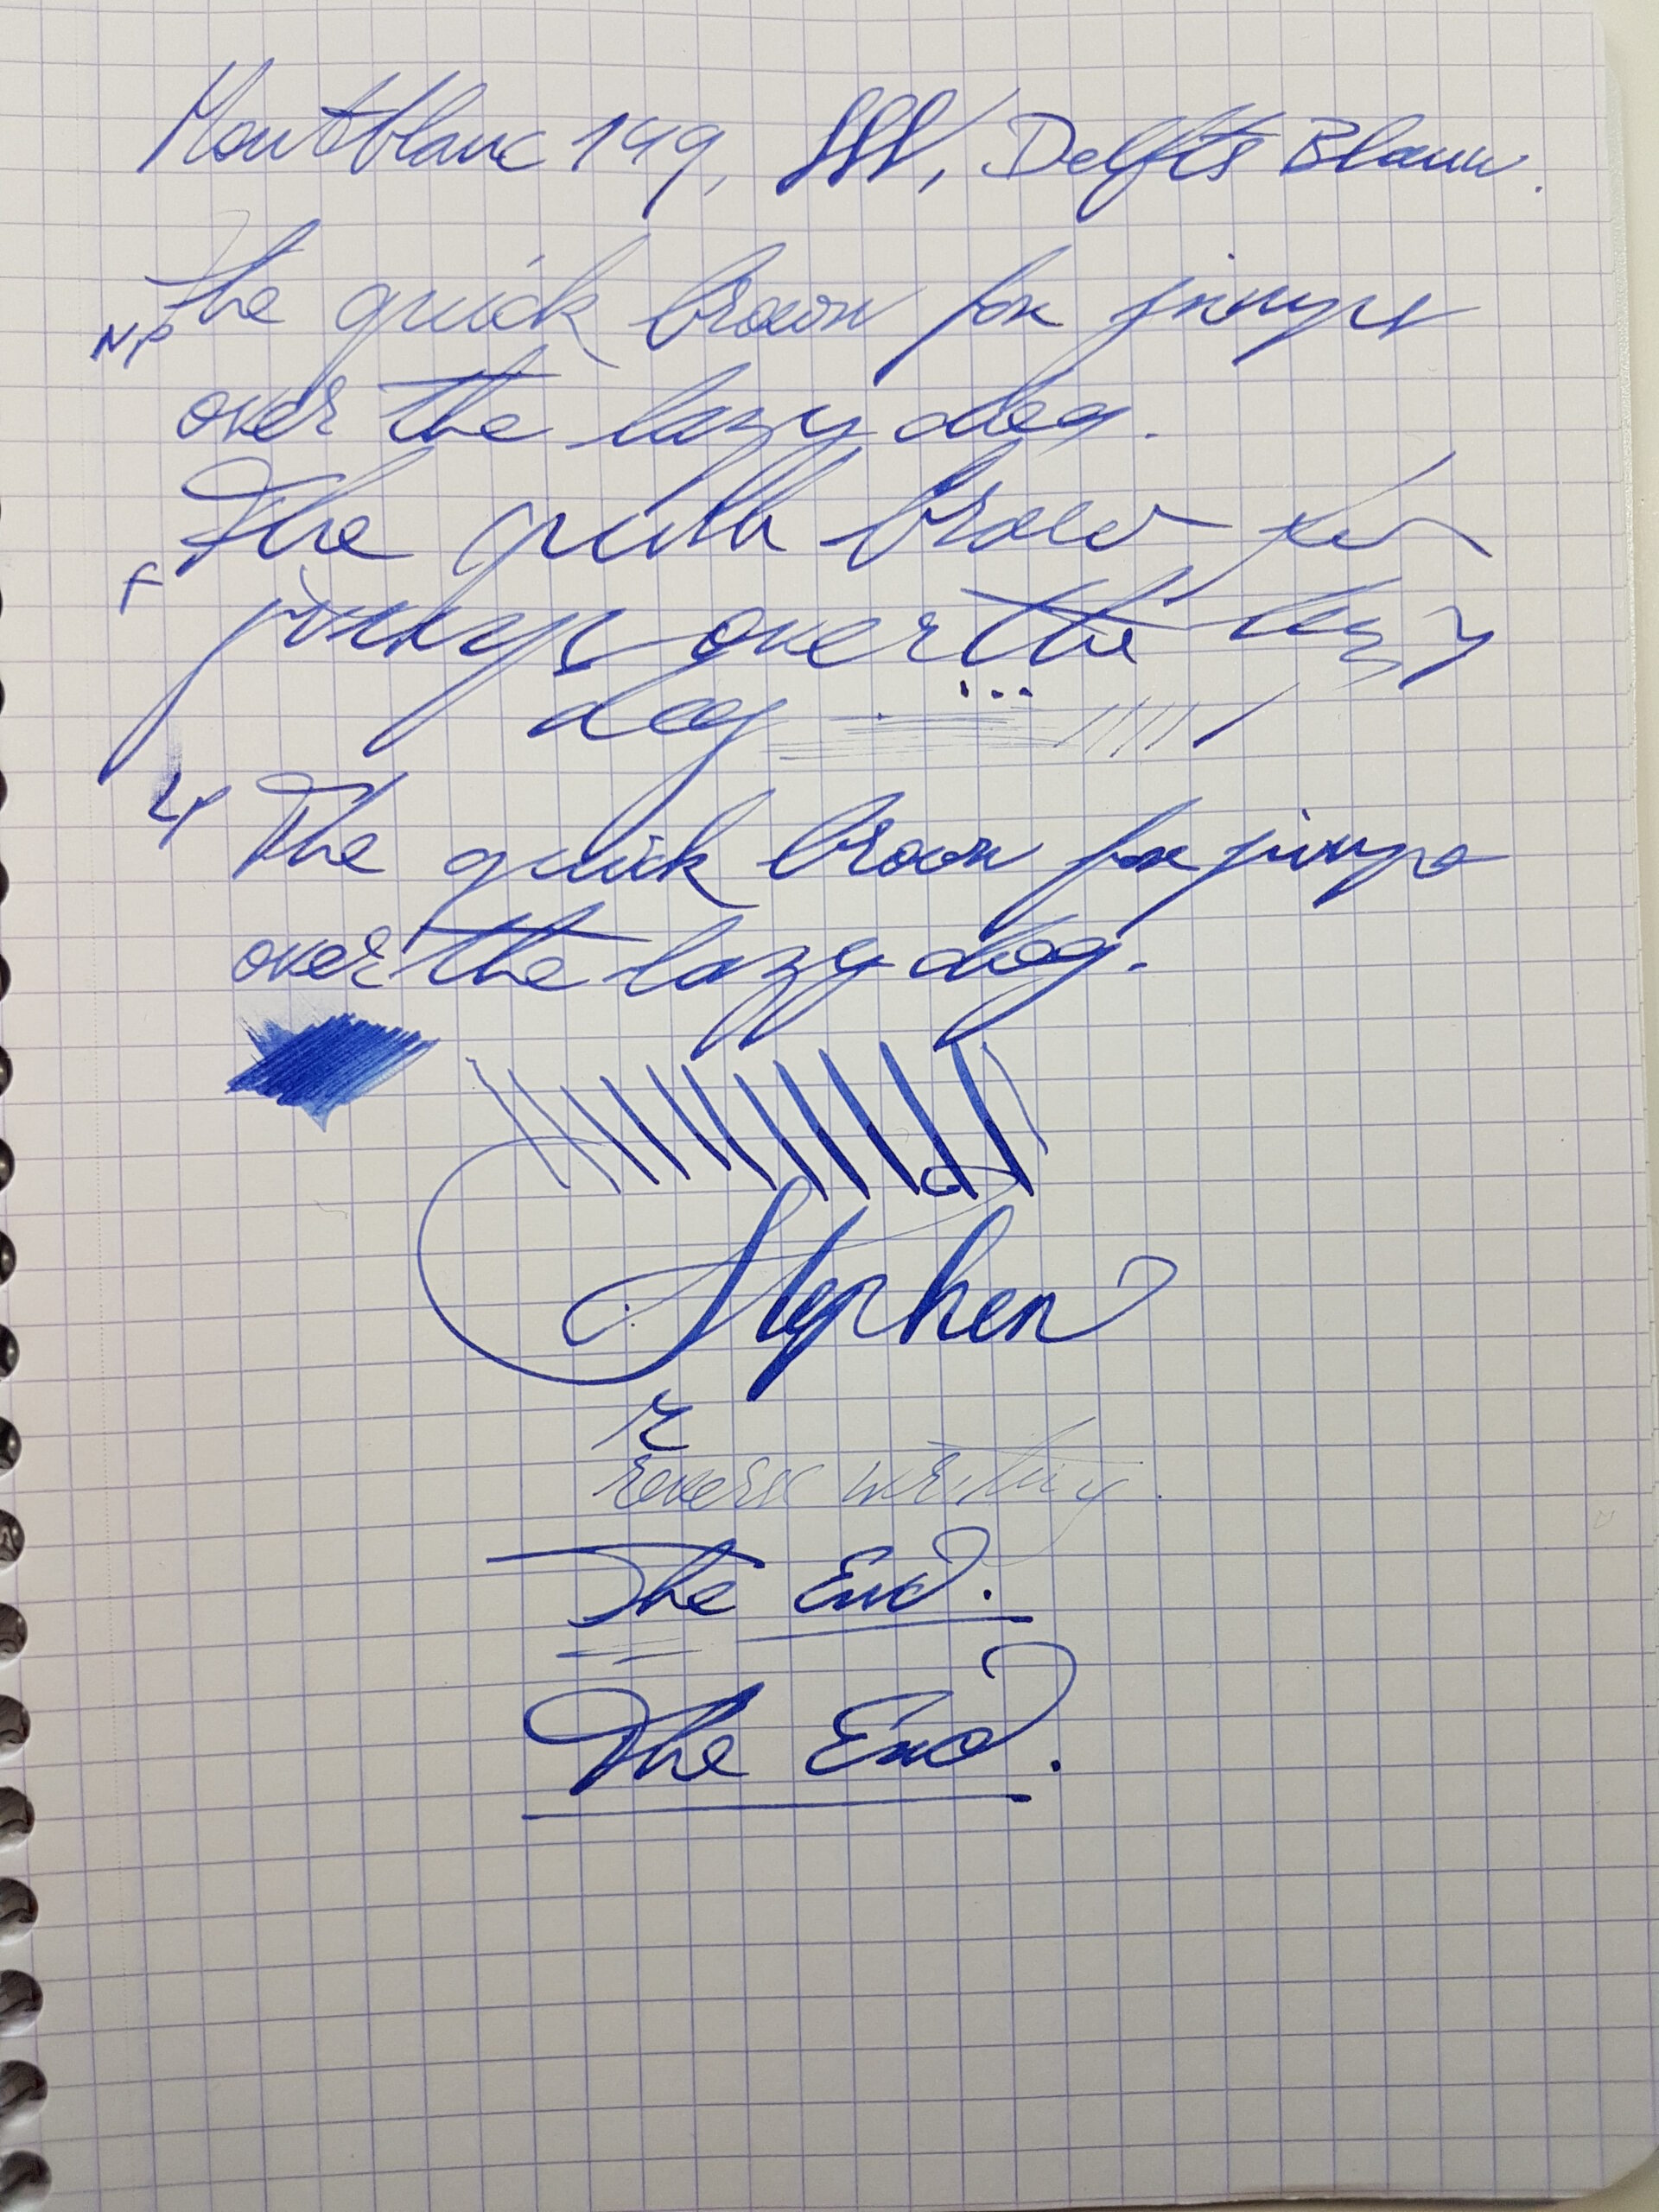 Montblanc 149, , Delfts Blauw.
NP The quick brown fox jumps
over the lazy dog.
The quick brown fox
F jumps over the lazy
dog
LP The quick brown fox jumps
over the lazy dog.
Stephen
R
reverse writing.
The End.
The End.